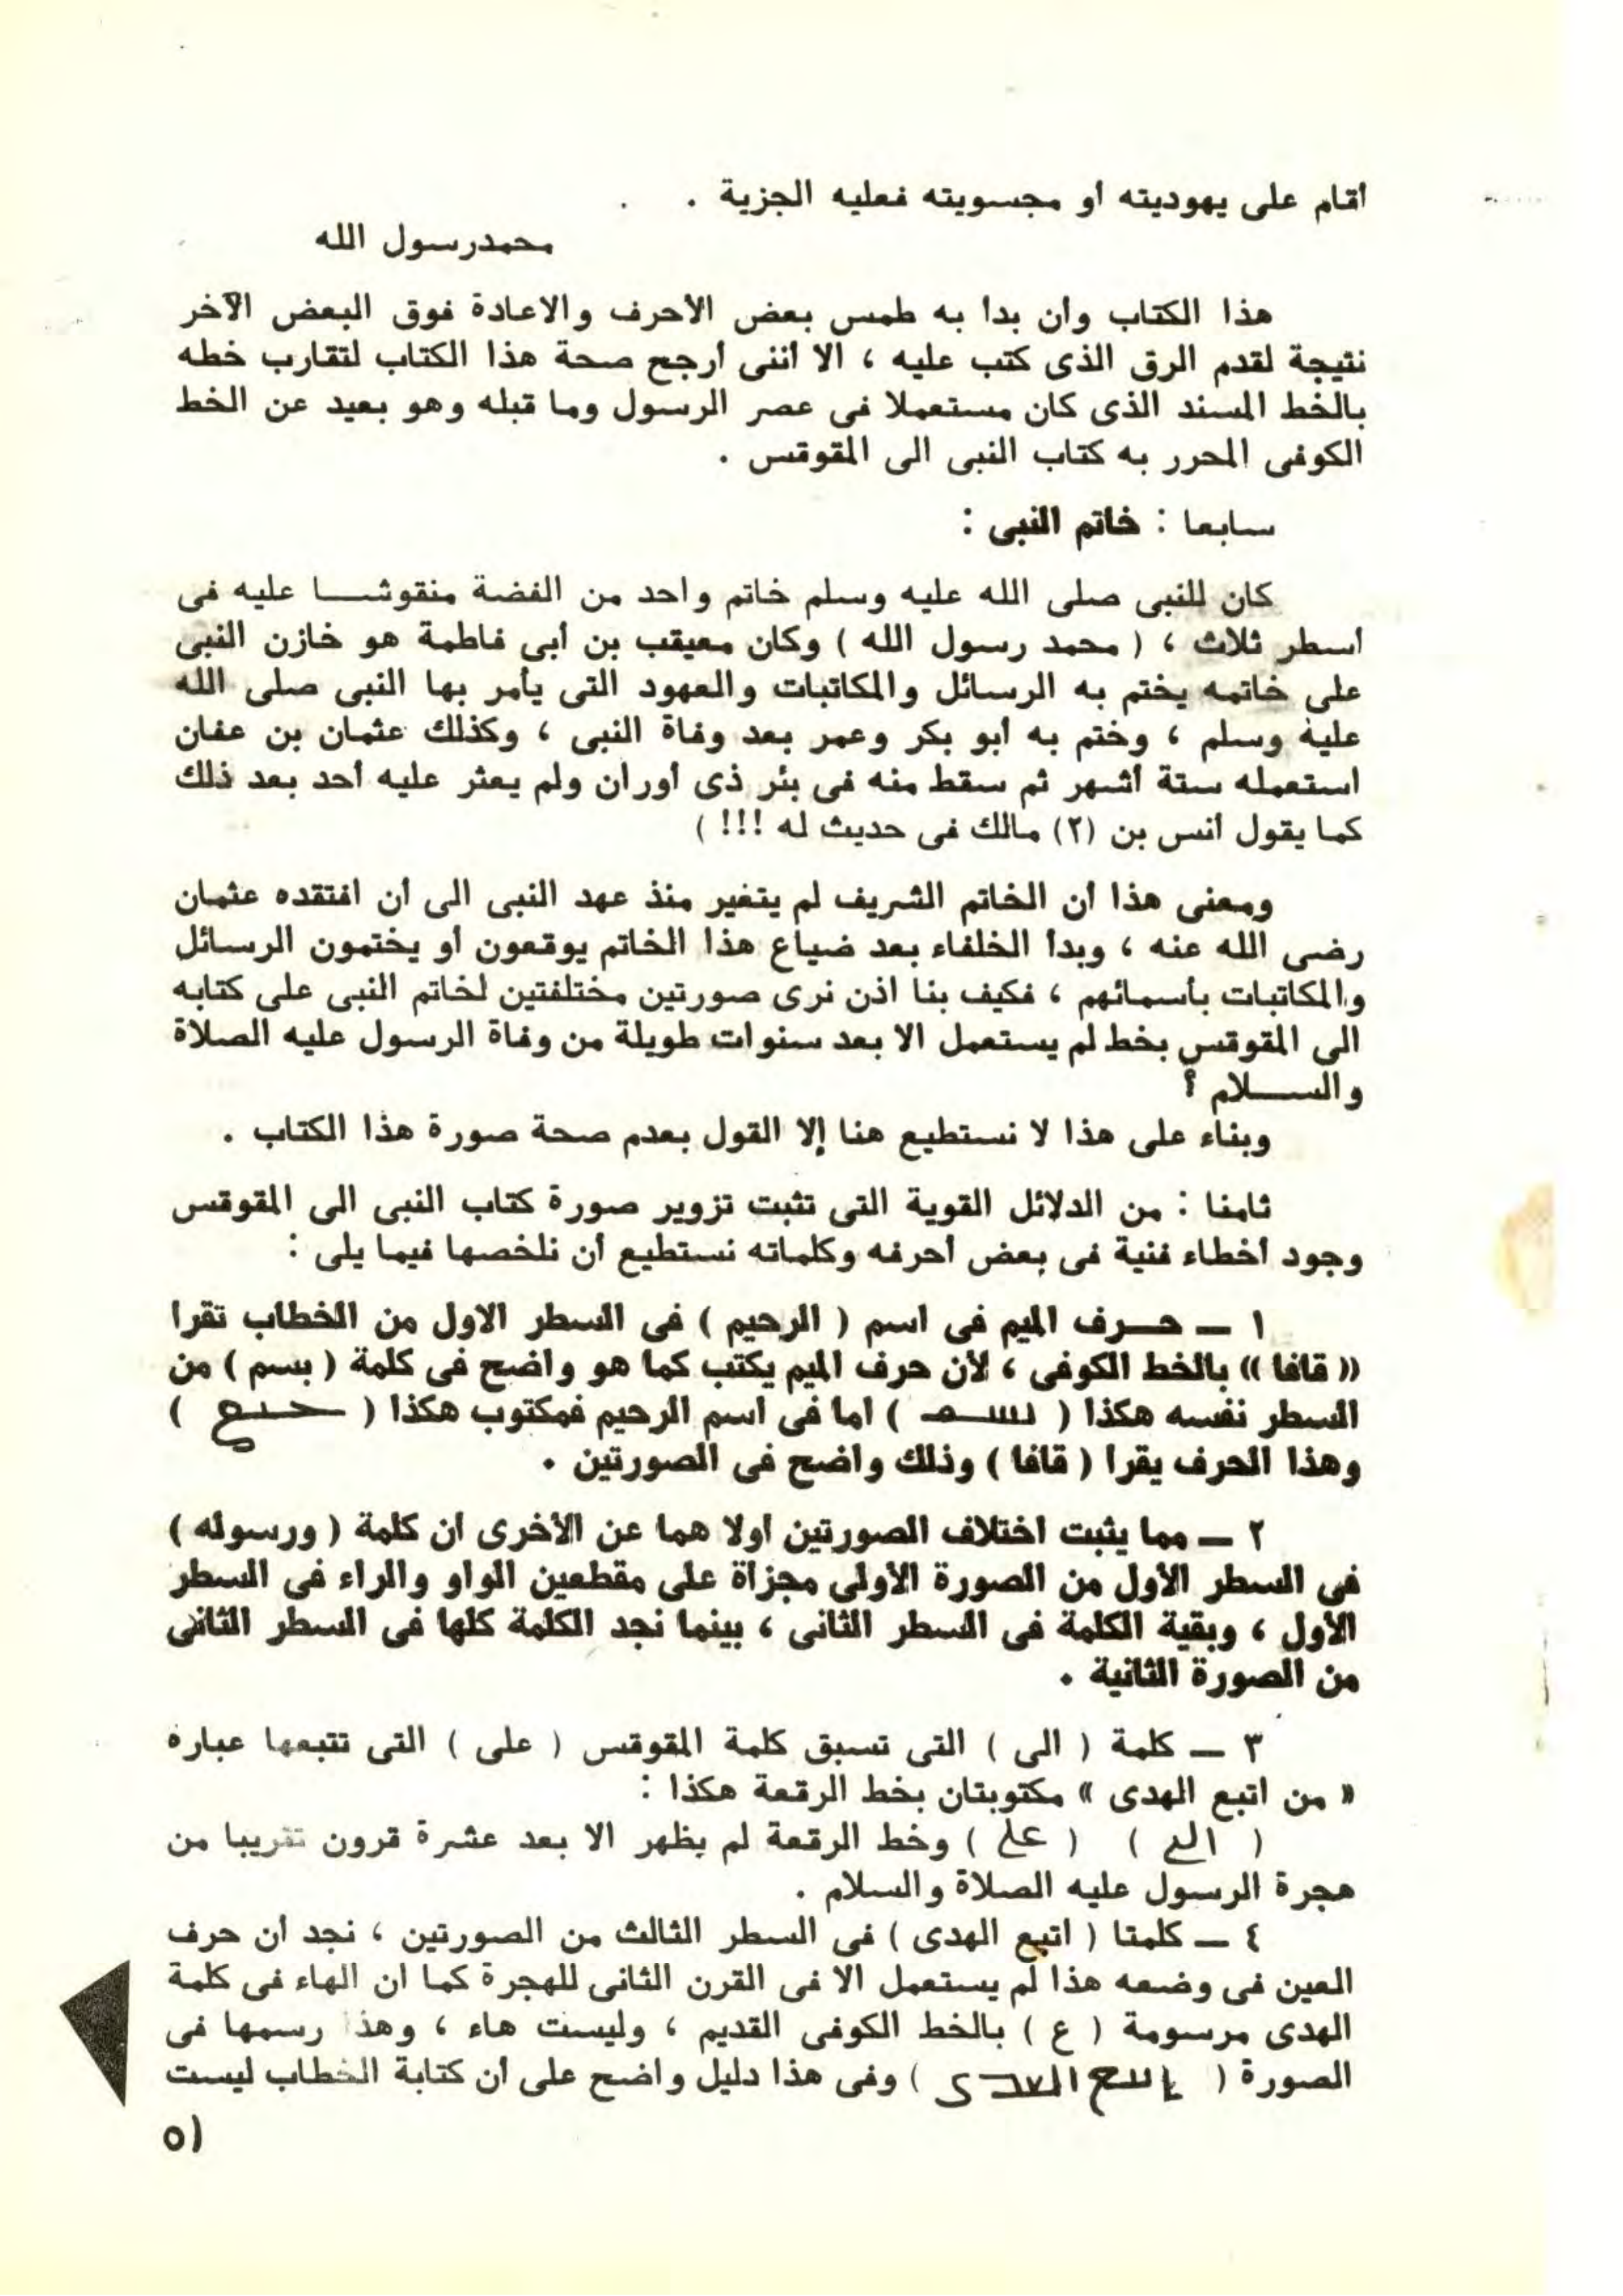 أقام على يهوديته أو مجسويته فعليه الجزية .
محمدرسول الله
هذا الكتاب وان بدا به طمس بعض الأحرف والاعادة فوق البعض الآخر
نتيجة لقدم الرق الذى كتب عليه ، الا أننى أرجح صحة هذا الكتاب لتقارب خطه
بالخط المسند الذى كان مستعملا فى عصر الرسول وما قبله وهو بعيد عن الخط
الكوفى المحرر به كتاب النبى الى المقوقس .
سابعا : خاتم النبى :
كان للنبى صلى الله عليه وسلم خاتم واحد من الفضة منقوشا عليه فى
أسطر ثلاث ، ( محمد رسول الله ) وكان معيقب بن أبى فاطمة هو خازن النبى
على خاتمه يختم به الرسائل والمكاتبات والعهود التى يأمر بها النبى صلى الله
عليه وسلم ، وختم به أبو بكر وعمر بعد وفاة النبى ، وكذلك عثمان بن عفان
استعمله ستة أشهر ثم سقط منه فى بئر ذى أوران ولم يعثر عليه أحد بعد ذلك
كما يقول أنس بن (٢) مالك فى حديث له !!! )
ومعنى هذا أن الخاتم الشريف لم يتغير منذ عهد النبى الى أن افتقده عثمان
رضى الله عنه ، وبدأ الخلفاء بعد ضياع هذا الخاتم يوقعون أو يختمون الرسائل
والمكاتبات بأسمائهم ، فكيف بنا اذن نرى صورتين مختلفتين لخاتم النبى على كتابه
الى المقوقس بخط لم يستعمل الا بعد سنوات طويلة من وفاة الرسول عليه الصلاة
والسلام ؟
وبناء على هذا لا نستطيع هنا إلا القول بعدم صحة صورة هذا الكتاب .
ثامنا : من الدلائل القوية التى تثبت تزوير صورة كتاب النبى الى المقوقس
وجود أخطاء فنية فى بعض أحرفه وكلماته نستطيع أن نلخصها فيما يلى :
١ ـ حرف الميم فى اسم ( الرحيم ) فى السطر الاول من الخطاب تقرأ
« قافا » بالخط الكوفى ، لأن حرف الميم يكتب كما هو واضح فى كلمة ( بسم ) من
السطر نفسه هكذا ( ) اما فى اسم الرحيم فمكتوب هكذا ( )
وهذا الحرف يقرا ( قافا ) وذلك واضح فى الصورتين .
٢ ـ مما يثبت اختلاف الصورتين اولا هما عن الأخرى ان كلمة ( ورسوله )
فى السطر الأول من الصورة الأولى مجزاة على مقطعين الواو والراء فى السطر
الأول ، وبقية الكلمة فى السطر الثانى ، بينما نجد الكلمة كلها فى السطر الثانى
من الصورة الثانية .
٣ ـ كلمة ( الى ) التى تسبق كلمة المقوقس ( على ) التى تتبعها عباره
« من اتبع الهدى » مكتوبتان بخط الرقعة هكذا :
( الى ) ( على ) وخط الرقعة لم يظهر الا بعد عشرة قرون تقريبا من
هجرة الرسول عليه الصلاة والسلام .
٤ ـ كلمتا ( اتبع الهدى ) فى السطر الثالث من الصورتين ، نجد أن حرف
العين فى وضعه هذا لم يستعمل الا فى القرن الثانى للهجرة كما ان الهاء فى كلمة
الهدى مرسومة ( ع ) بالخط الكوفى القديم ، وليست هاء ، وهذا رسمها فى
الصورة ( ) وفى هذا دليل واضح على أن كتابة الخطاب ليست
٥١